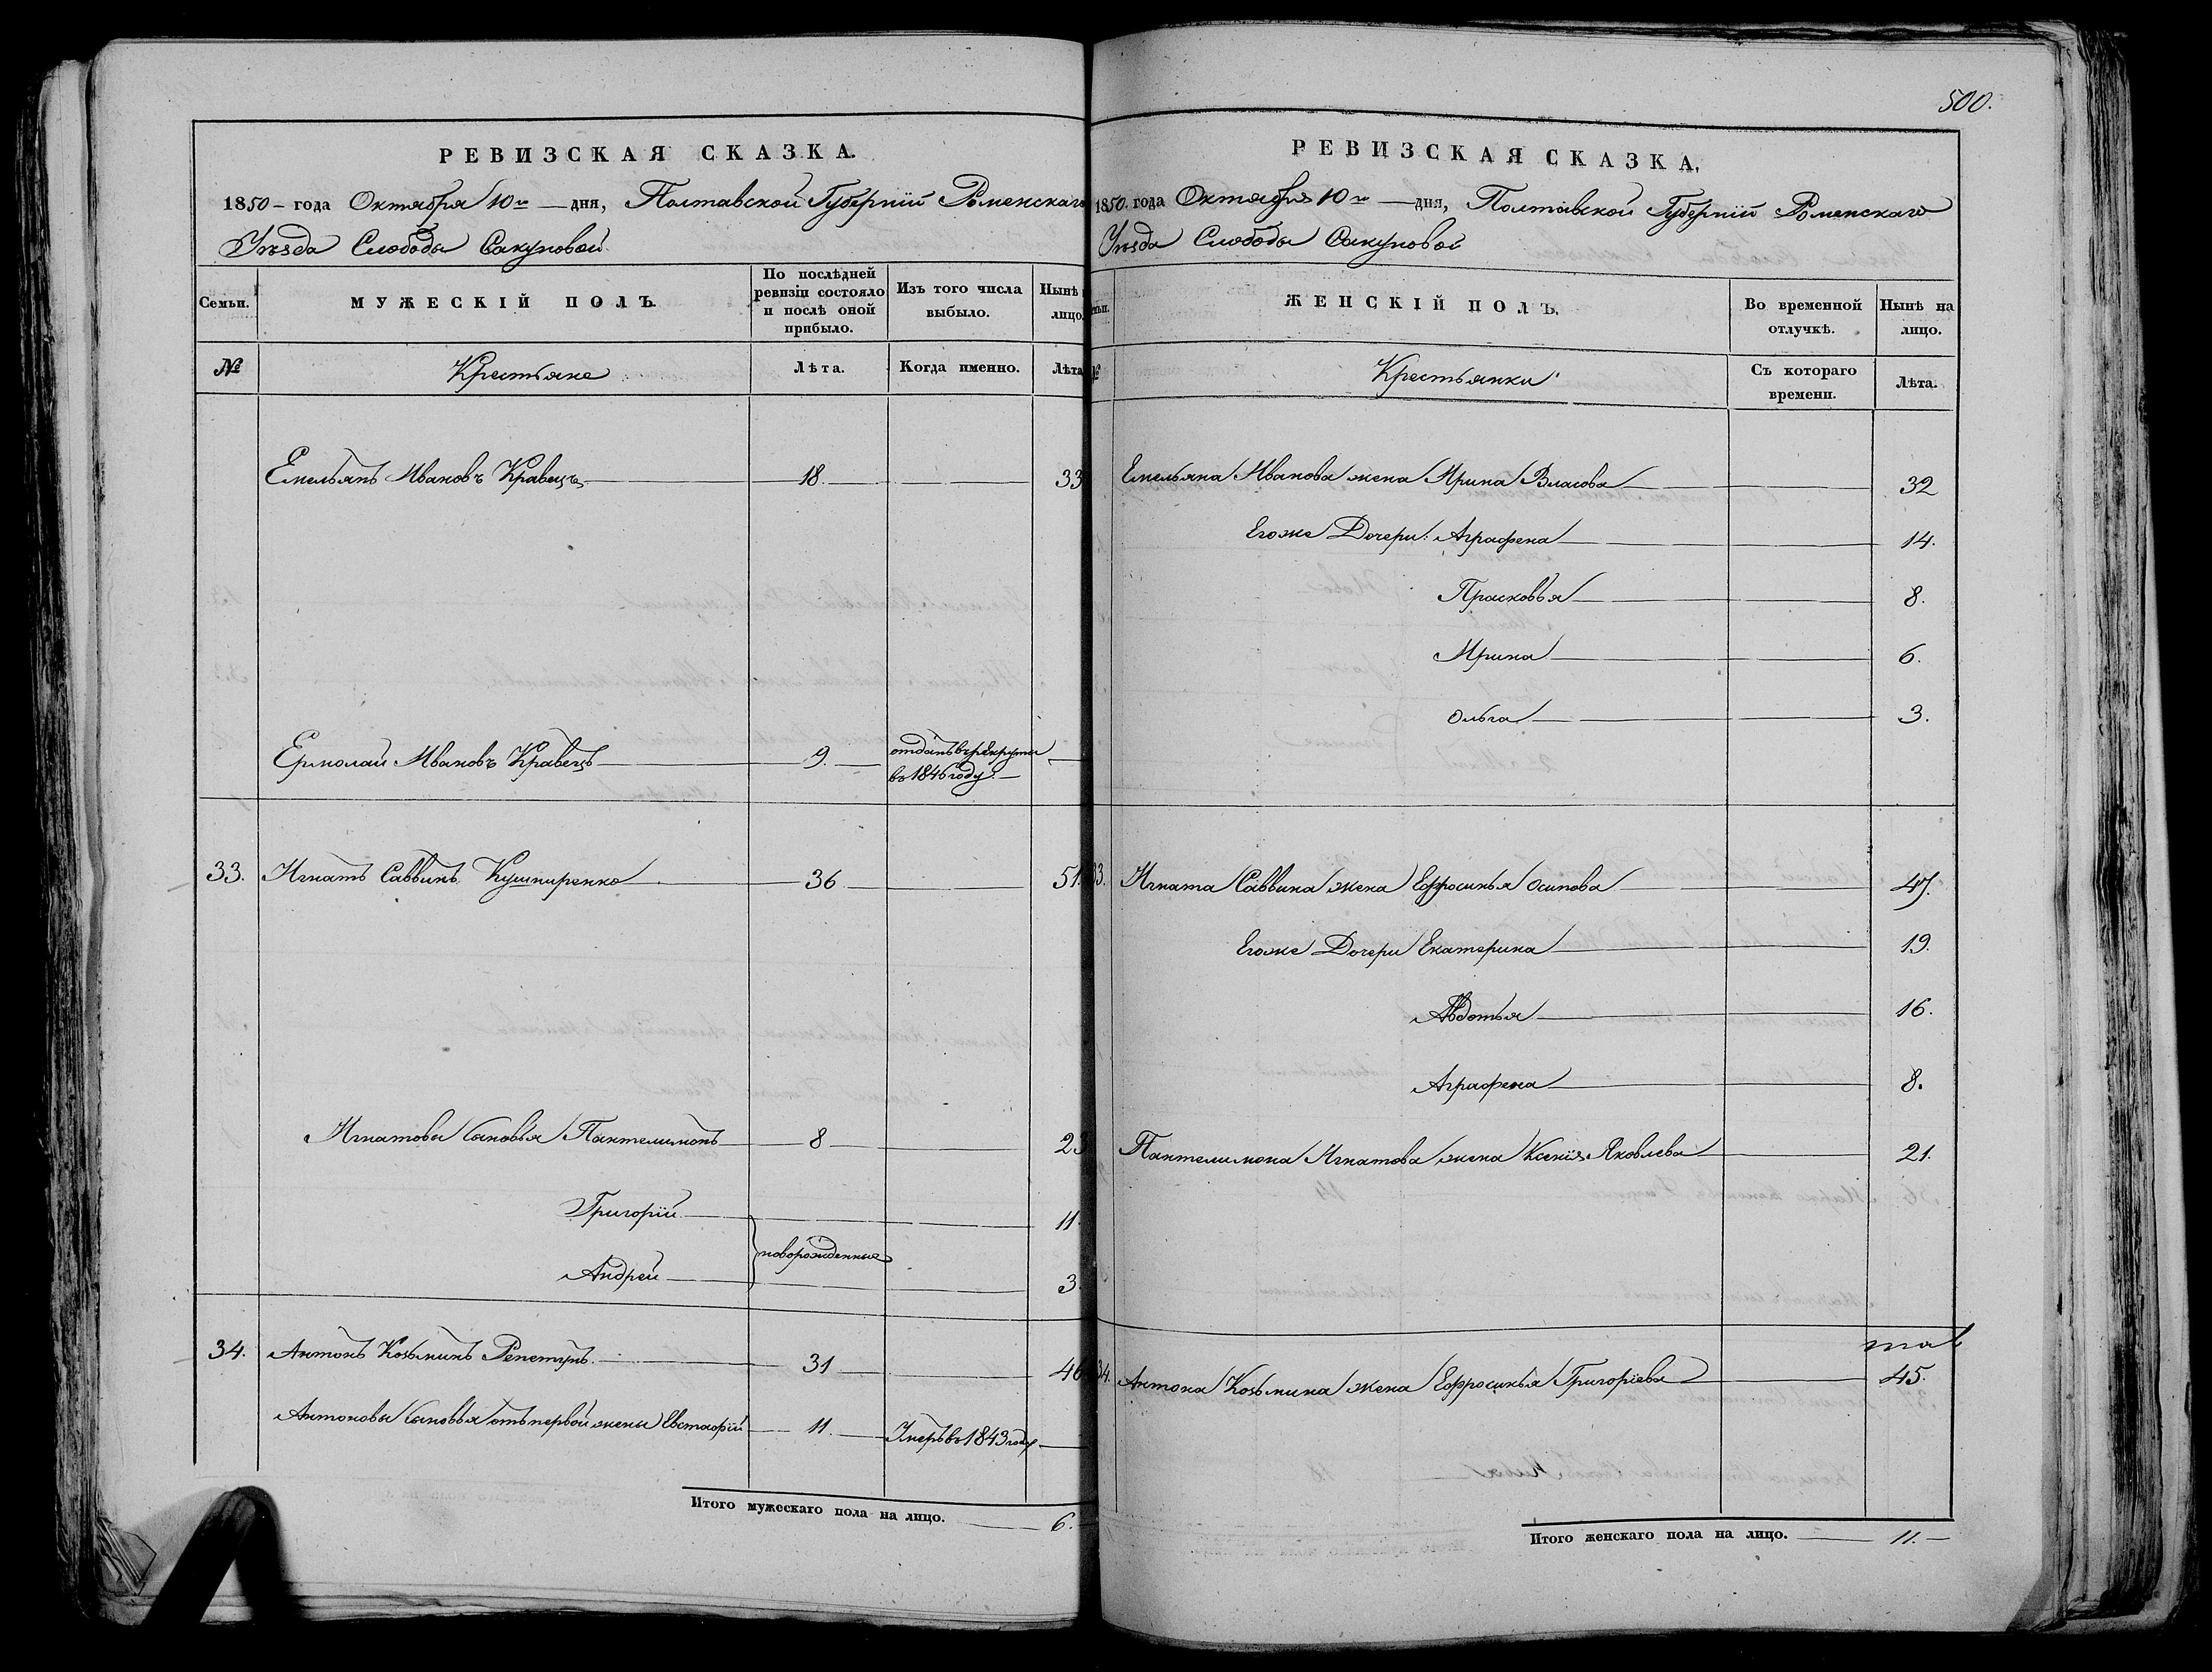 РЕВИЗСКАЯ СКАЗКА.
1850 – года Октября 10го — дня, Полтавской Губерніи Роменскаго
Уѣзда Слободы Сакуновой
Семьи. МУЖЕСКІЙ ПОЛЪ. По послѣдней ревизіи состояло и послѣ оной прибыло. Изъ того числа выбыло. Нынѣ лицо.
№ Крестьяне Лѣта. Когда именно. Лѣта
Емельянъ Ивановъ Кравецъ 18. 33
Ермолай Ивановъ Кравецъ 9. отданъ въ рекруты
въ 1846 году.
33. Игнатъ Саввинъ Кушниренко 36 51.
Игнатовы Сыновья Пантелимонъ 8 23
Григорій 11.
новорожденные
Андрей 3.
34. Антонъ Козьминъ Репетунъ. 31 46
Антоновы Сыновья отъ первой жены Евстафій 11. Умеръ въ 1843 году
Итого мужескаго пола на лицо. 6.
500.
РЕВИЗСКАЯ СКАЗКА.
1850 года Октября 10го — дня, Полтавской Губерніи Роменскаго
Уѣзда Слободы Сакуновой
ЖЕНСКІЙ ПОЛЪ. Во временной отлучкѣ. Нынѣ на лицо.
№ Крестьянки Съ котораго времени. Лѣта.
Емельяна Иванова жена Ирина Власова 32
Егоже Дочери: Аграфена 14.
Прасковья 8.
Ирина 6.
Ольга 3.
33. Игната Саввина жена Ефросинья Осипова 47.
Егоже Дочери Екатерина 19.
Авдотья 16.
Аграфена 8.
Пантелимона Игнатова жена Ксенія Яковлева 21.
34. Антона Козьмина жена Ефросинья Григоріева 45.
Итого женскаго пола на лицо. 11.